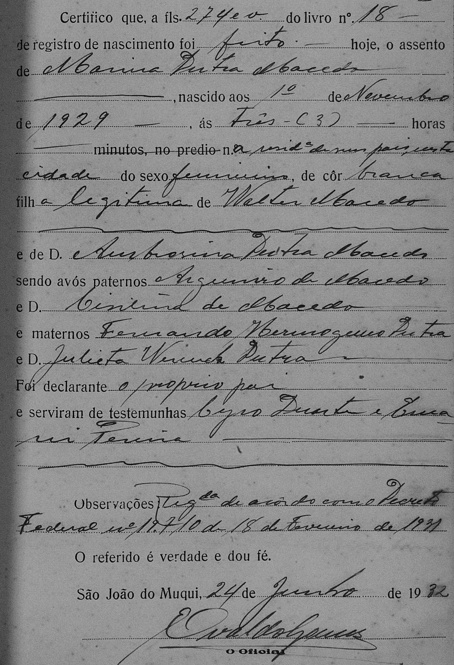 Certifico que, a fls. 274 e v. do livro nº. 18 —
de registro de nascimento foi feito — hoje, o assento
de Marina Dutra Macedo
, nascido aos 1º de Novembro
de 1929 — , ás três — (3) — horas
— minutos, no predio n. a resida de seus pais, nesta
cidade do sexo feminino, de côr branca
filha legitima de Walter Macedo
e de D. Ambrosina Dutra Macedo
sendo avós paternos Argemiro de Macedo
e D. de Macedo
e maternos Fernando Hermogeneo Dutra
e D. Julieta Dutra
Foi declarante o proprio pai
e serviram de testemunhas Cyro Duarte e
Pereira
Observações Regda de acôrdo com o Decreto
Federal nº 19.710 de 18 de Fevereiro de 1931
O referido é verdade e dou fé.
São João do Muqui, 24 de Junho de 1932
O Oficial